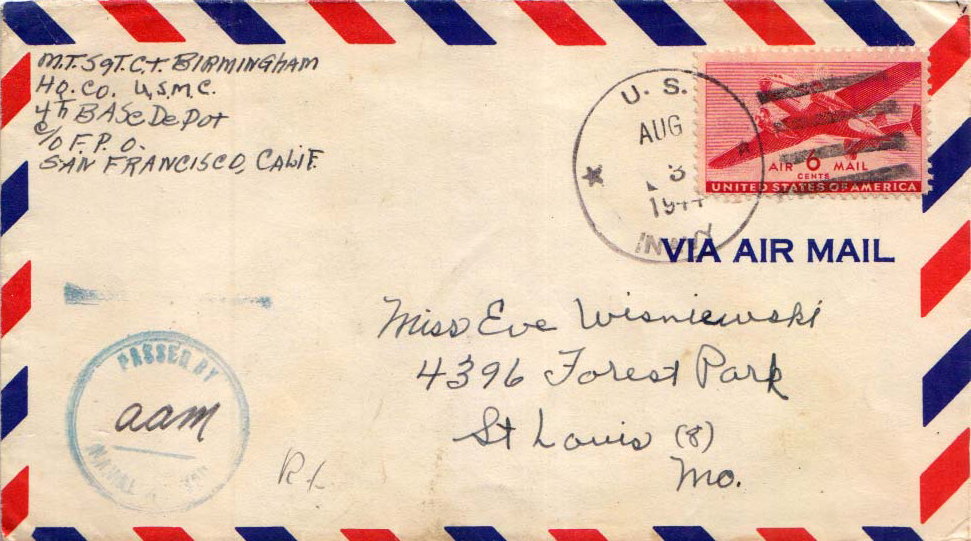 M.T. SgT. C.T. BIRMINGHAM
HQ. Co. U.S.M.C.
4Th BASe DePoT
C/O F.P.O.
SAN FRANCISCO, CALIF.
U. S.
AUG
3
1944
NAVY
AIR 6 MAIL
CENTS
UNITED STATES OF AMERICA
VIA AIR MAIL
Miss Eve Wisniewski
4396 Forest Park
St Louis (8)
Mo.
PASSED BY
aam
NAVAL